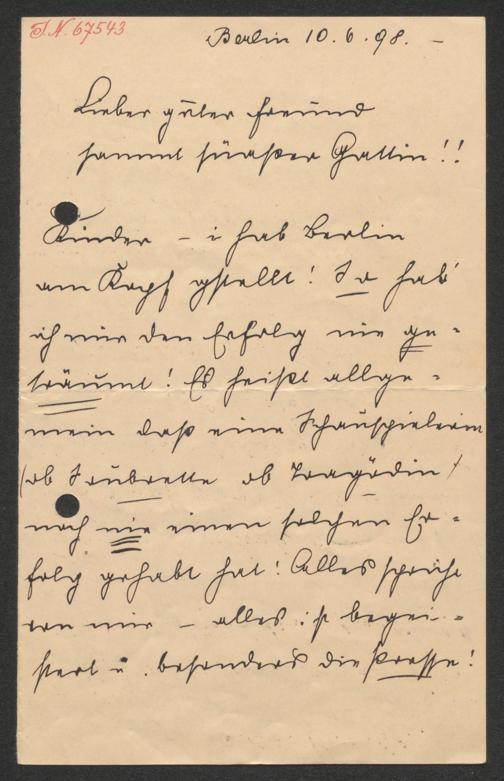 I.N. 67543
Berlin 10.6.98. –
Lieber guter Freund
sammt süasser Gattin!!
Kinder – i hab Berlin
am Kopf gstellt! So hab'
ich mir den Erfolg nie ge-
träumt! Es heißt allge-
mein daß eine Schauspielerin
(ob Soubrette ob Tragödin)
noch nie einen solchen Er-
folg gehabt hat! Alles spricht
von mir – alles ist begei-
stert u. besonders die Presse!